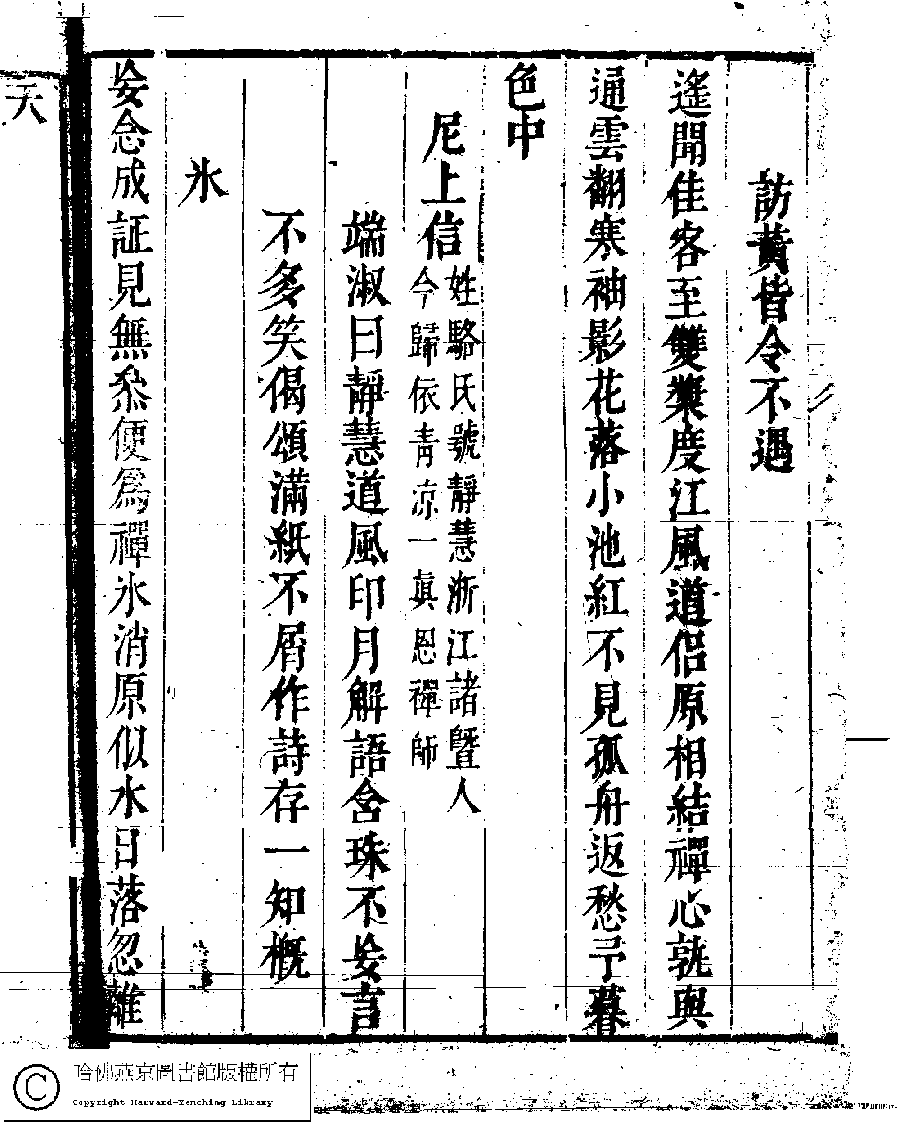 訪黃皆令不遇
遙聞佳客至雙槳度江風道侶原相結禪心孰與
通雲翻寒袖影花落小池紅不見孤舟返愁予暮
色中
尼上信
姓駱氏號靜慧浙江諸曁人
今歸依青凉一眞恩禪師
端淑曰靜慧道風印月解語含珠不妄言
不多笑偈頌滿紙不屑作詩存一知槪
氷
妄念成証見無叅便爲禪氷消原似水日落忽離
天
哈佛燕京圖書館版權所有
Copyright Harvard-Yenching Library